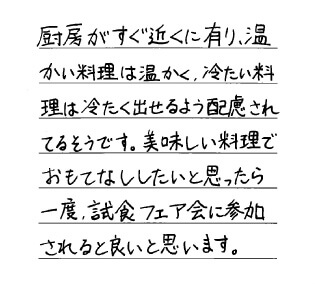 厨房がすぐ近くに有り、温
かい料理は温かく、冷たい料
理は冷たく出せるよう配慮され
てるそうです。美味しい料理で
おもてなししたいと思ったら
一度、試食フェア会に参加
されると良いと思います。